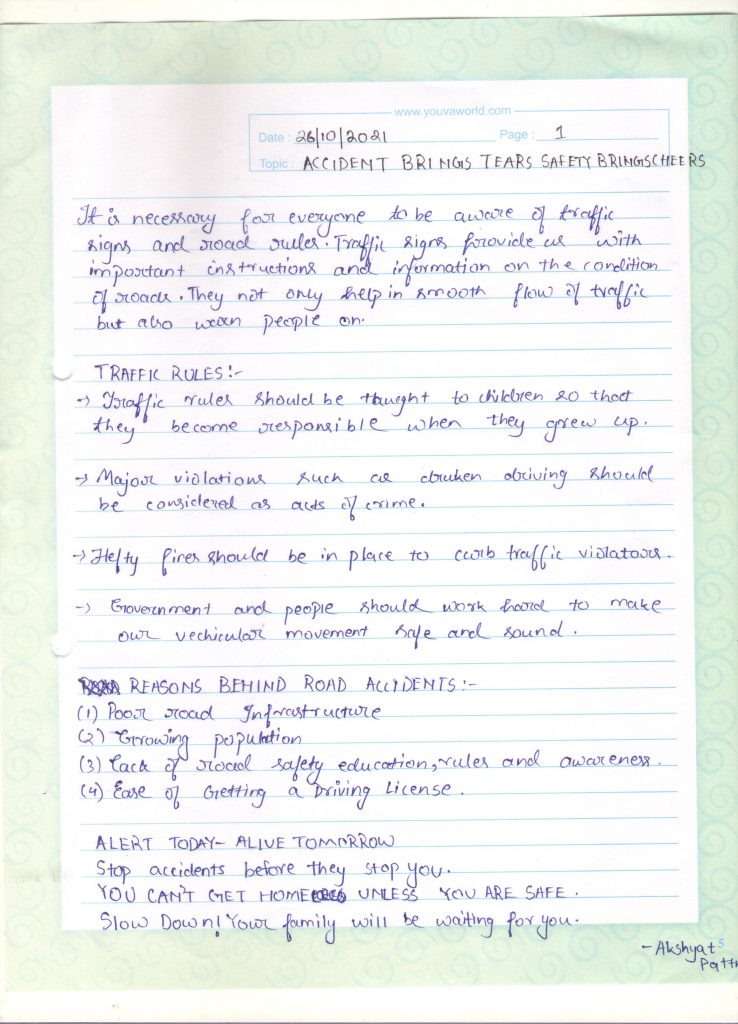 www.youvaworld.com
Date : 26/10/2021 Page : 1
Topic : ACCIDENT BRINGS TEARS SAFETY BRINGS CHEERS
It is necessary for everyone to be aware of traffic
signs and road rules. Traffic signs provide us with
important instructions and information on the condition
of roads. They not only help in smooth flow of traffic
but also warn people on.
TRAFFIC RULES:-
→ Traffic rules should be thaught to children so that
they become responsible when they grew up.
→ Major violations such as druken driving should
be considered as acts of crime.
→ Hefty fines should be in place to curb traffic violators.
→ Government and people should work hard to make
our vechicular movement safe and sound.
REASONS BEHIND ROAD ACCIDENTS:-
(1) Poor road Infrastructure
(2) Growing population
(3) Lack of road safety education, rules and awareness.
(4) Ease of Getting a Driving License.
ALERT TODAY- ALIVE TOMORROW
Stop accidents before they stop you.
YOU CAN'T GET HOME UNLESS YOU ARE SAFE.
Slow Down! Your family will be waiting for you.
- Akshyat 5